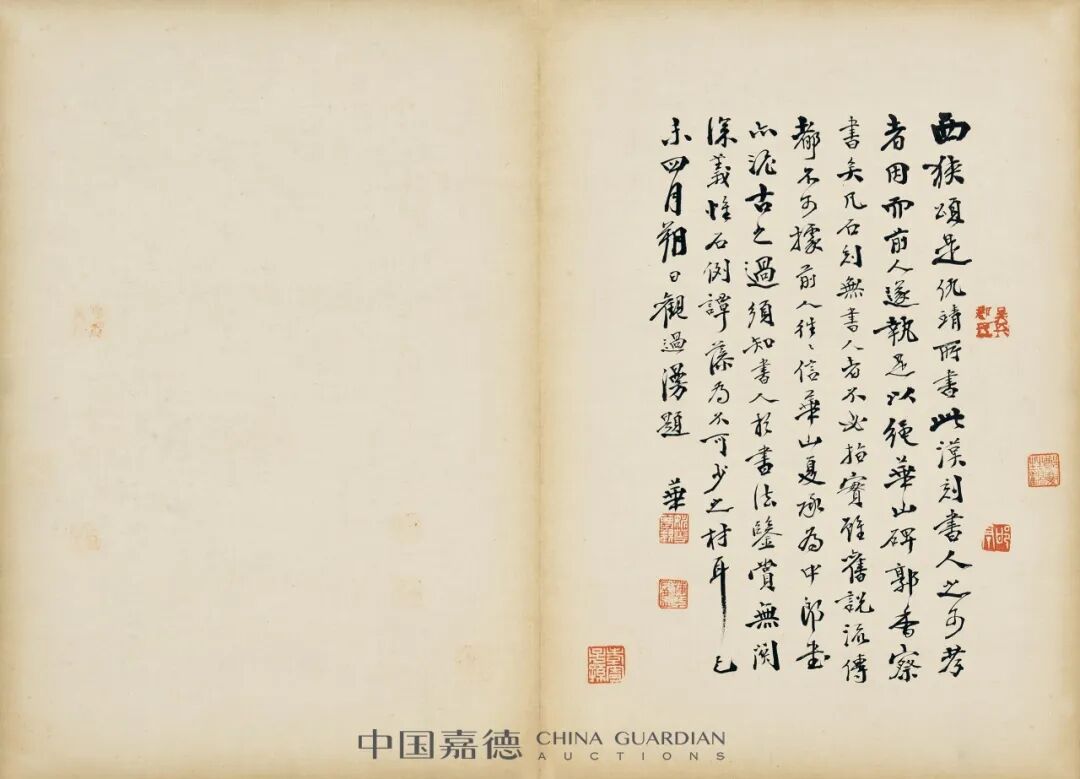 西狹頌是仇靖所書此漢刻書人之可考
者因而前人遂執是以繩華山碑郭香察
書矣凡石刻無書人者不必指實雖舊說流傳
都不可據前人往〻信華山夏承為中郎書
亦泥古之過須知書人於書法鑒賞無關
深義惟石例譚藻為不可少之材耳乙
未四月朔日觀過湧題
華
中国嘉德 CHINA GUARDIAN
AUCTIONS